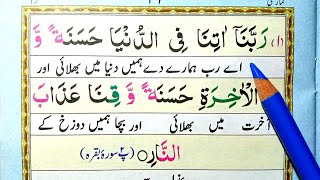 (۱) رَبَّنَآ اٰتِنَا فِی الدُّنْیَا حَسَنَةً وَّ
اے رب ہمارے دے ہمیں دنیا میں بھلائی اور
فِی الْاٰخِرَةِ حَسَنَةً وَّ قِنَا عَذَابَ
آخرت میں بھلائی اور بچا ہمیں دوزخ کے
النَّارِ ○ (پ۲ سورۃ بقرہ)